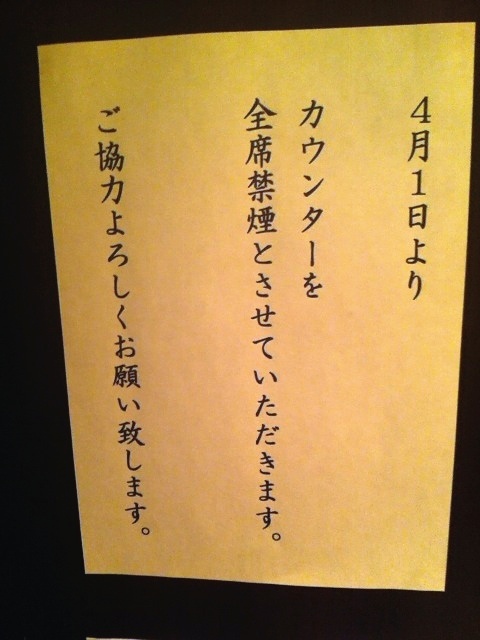 ４月１日より
カウンターを
全席禁煙とさせていただきます。
ご協力よろしくお願い致します。